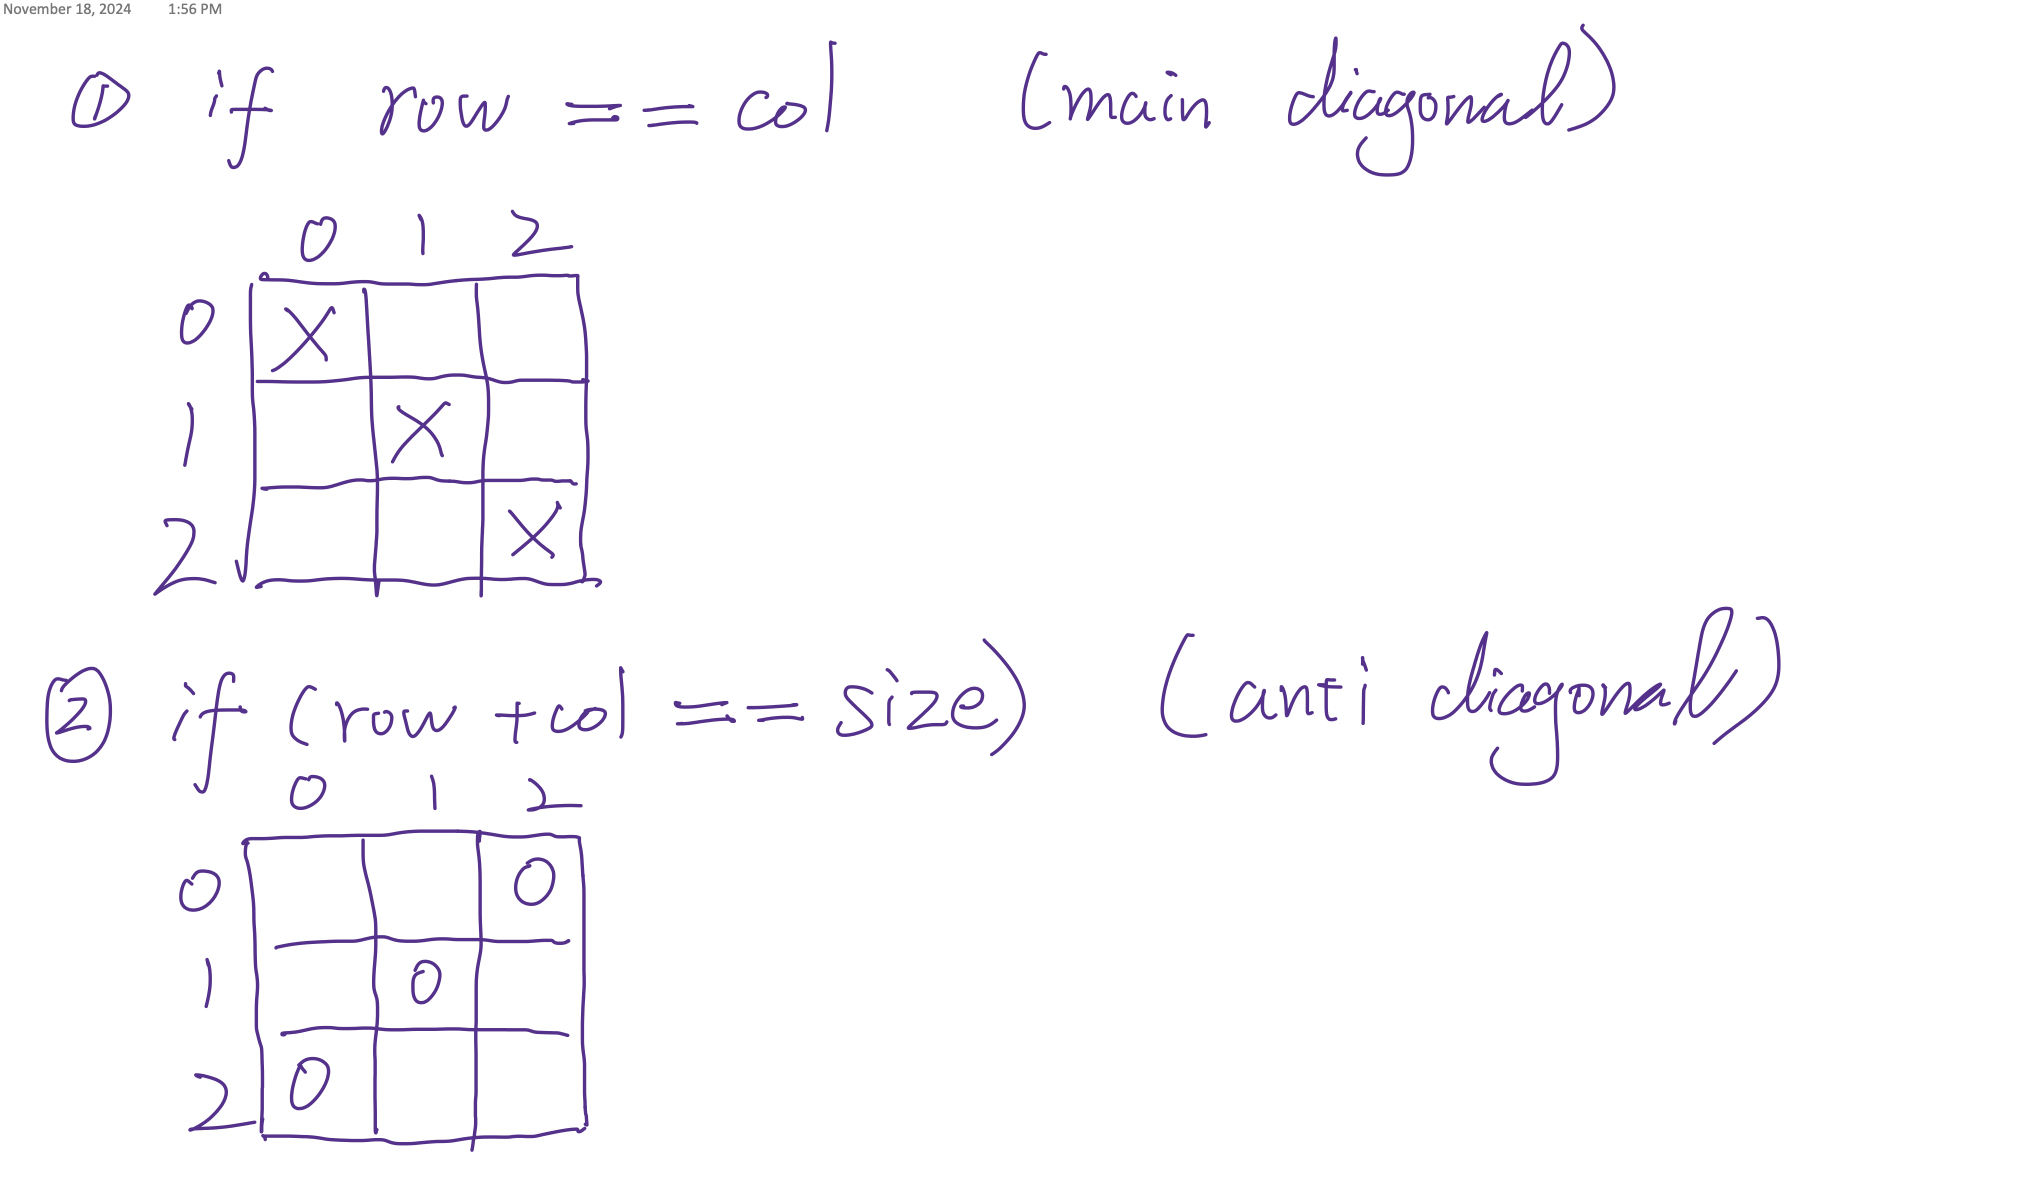 November 18, 2024 1:56 PM
① if row == col (main diagonal)
0 1 2
0 X
1 X
2 X
② if (row + col == size) (anti diagonal)
0 1 2
0 O
1 O
2 O